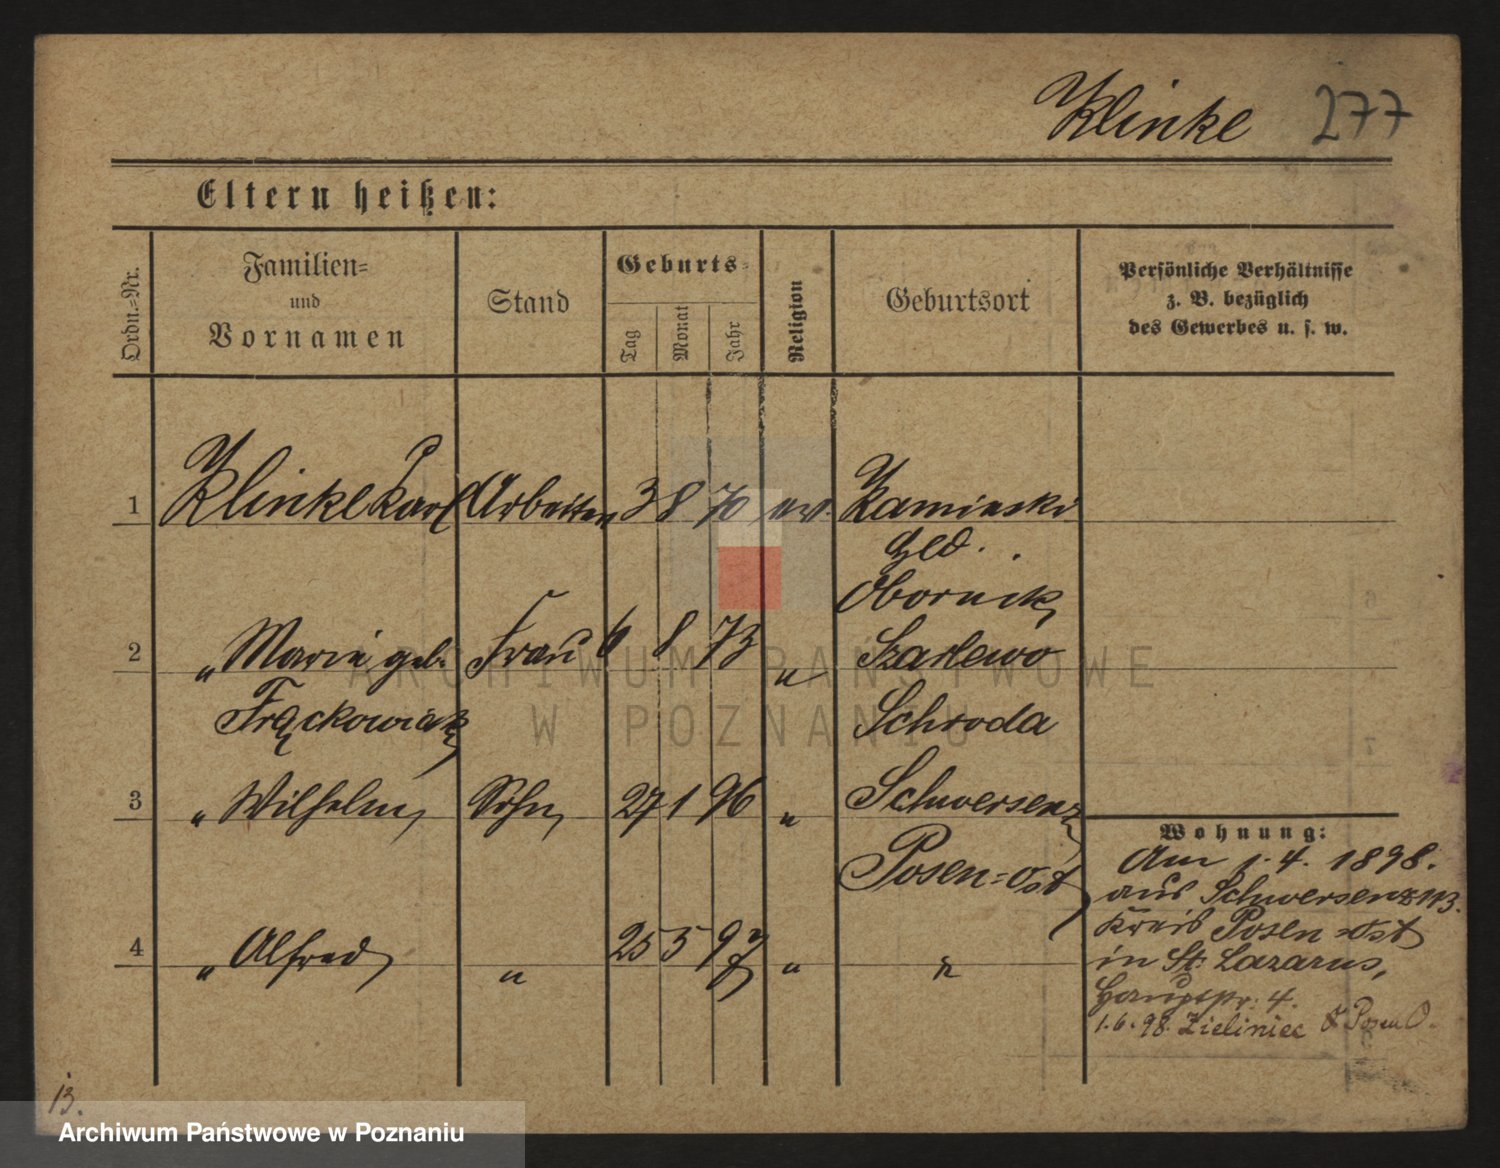 Klinke 277
Eltern heißen:
Ordn.=Nr.
Familien=
und
Vornamen
Stand
Geburts=
Tag
Monat
Jahr
Religion
Geburtsort
Persönliche Verhältnisse
z. B. bezüglich
des Gewerbes u. s. w.
1 Klinke Karl Arbeiter 3 8 70 ev. Kaminski
Hld.
Obornik
2 „ Marie geb. Frau 6 8 73 „ Szarlewo
Frąckowiak Schroda
3 „ Wilhelm Sohn 27 1 96 „ Schwersenz
Posen=Ost
4 „ Alfred „ 25 5 97 „ „
Wohnung:
Am 1. 4. 1898.
aus Schwersenz 113.
Kreis Posen=Ost
in St. Lazarus,
Hauptstr: 4.
1.6.98. Zieliniec Posen O.
13.
ARCHIWUM PAŃSTWOWE
W POZNANIU
Archiwum Państwowe w Poznaniu